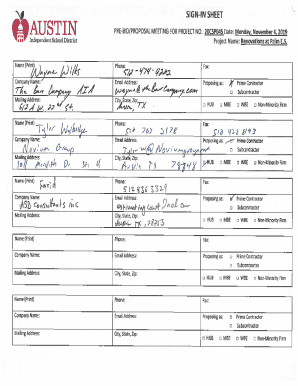 SIGN-IN SHEET
AUSTIN
Independent School District
PRE-BID/PROPOSAL MEETING FOR PROJECT NO. 20CSP045 Date: Monday, November 4, 2019
Project Name: Renovations at Palm E.S.
Name (Print) Phone: Fax:
Wayne 512-474-
Company Name: Email Address: Proposing as: Prime Contractor
The Company AIA Subcontractor
Mailing Address: City, State, Zip: HUB MBE WBE Non-Minority Firm
TX
Name (Print) Phone: Fax:
Tyler 512
Company Name: Email Address: Proposing as: Prime Contractor
Novium Group Subcontractor
Mailing Address City, State, Zip: HUB MBE WBE Non-Minority Firm
Austin TX
Name (Print) Phone: Fax:
Farid 5128363329
Company Name: Email Address: Proposing as: Prime Contractor
ASD Consultants Inc Subcontractor
Mailing Address: City, State, Zip: HUB MBE WBE Non-Minority Firm
Austin TX, 78753
Name (Print) Phone: Fax:
Company Name: Email Address: Proposing as: Prime Contractor
Subcontractor
Mailing Address City, State, Zip: HUB MBE WBE Non-Minority Firm
Name (Print) Phone: Fax:
Company Name: Email Address: Proposing as: Prime Contractor
Subcontractor
Mailing Address: City, State, Zip: HUB MBE WBE Non-Minority Firm